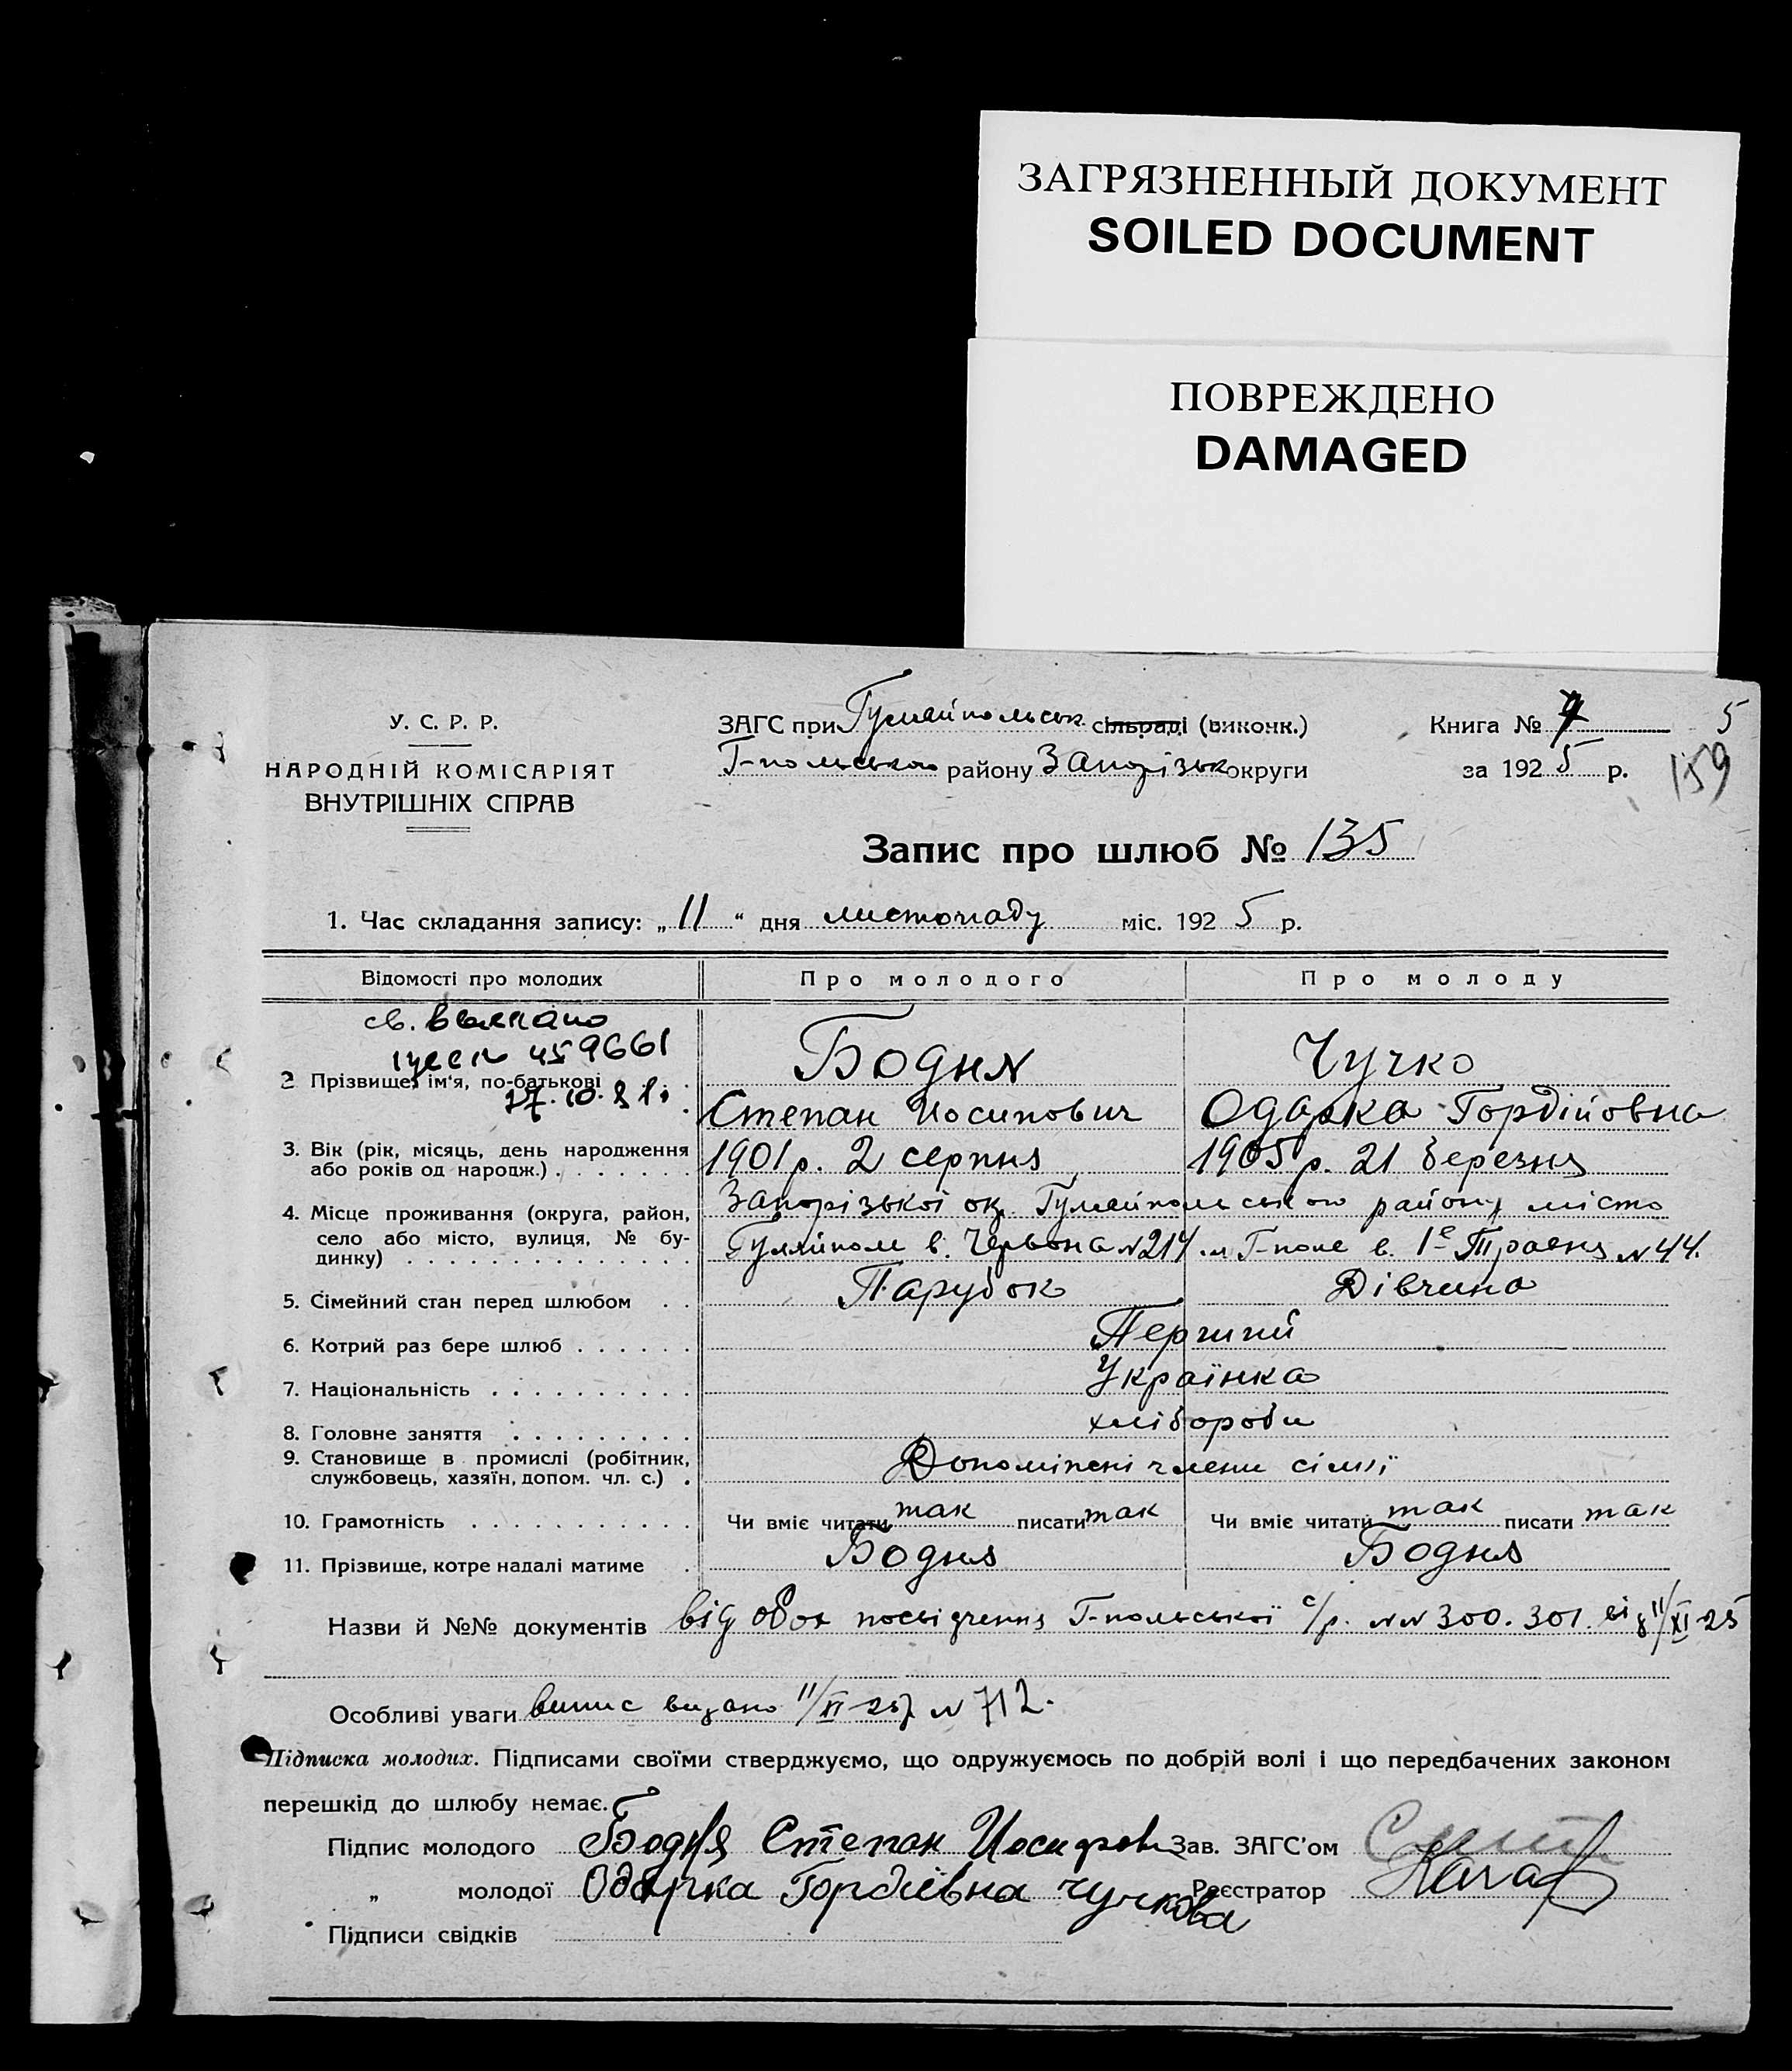 ЗАГРЯЗНЕННЫЙ ДОКУМЕНТ
SOILED DOCUMENT
ПОВРЕЖДЕНО
DAMAGED
У. С. Р. Р.
НАРОДНІЙ КОМІСАРІЯТ
ВНУТРІШНІХ СПРАВ
ЗАГС при Гуляйпольськ. сільраді (виконк.)
Г-польського району Запорізьк округи
Книга № 5
за 1925 р. 159
Запис про шлюб № 135
1. Час складання запису: „11“ дня листопаду міс. 1925 р.
Відомості про молодих Про молодого Про молоду
св.
459661
27.10.81.
2 Прізвище, ім'я, по-батькові
Бодня Чучко
Степан Иосипович Одарка Гордійовна
3. Вік (рік, місяць, день народження
або років од народж.)
1901 р. 2 серпня 1905 р. 21 березня
4. Місце проживання (округа, район,
село або місто, вулиця, № бу-
динку)
Запорізької ок. Гуляйпольського району місто
Гуляйполе в. Червона N 214 м Г-поле в. 1е Травня N 44.
5. Сімейний стан перед шлюбом Парубок Дівчина
6. Котрий раз бере шлюб Перший
7. Національність Українка
8. Головне заняття хлібороби
9. Становище в промислі (робітник,
службовець, хазяїн, допом. чл. с.)
члени сімї
10. Грамотність Чи вміє читати так писати так Чи вміє читати так писати так
11. Прізвище, котре надалі матиме Бодня Бодня
Назви й №№ документів від обох посвідчення Г-польської с/р. NN 300. 301. від 11/XI 25
Особливі уваги випис видано 11/XI-25р N 712.
Підписка молодих. Підписами своїми стверджуємо, що одружуємось по добрій волі і що передбачених законом
перешкід до шлюбу немає.
Підпис молодого Бодня Степан Иосифов Зав. ЗАГС'ом
„ молодої Одарка Гордіевна Чучкова Реєстратор
Підписи свідків